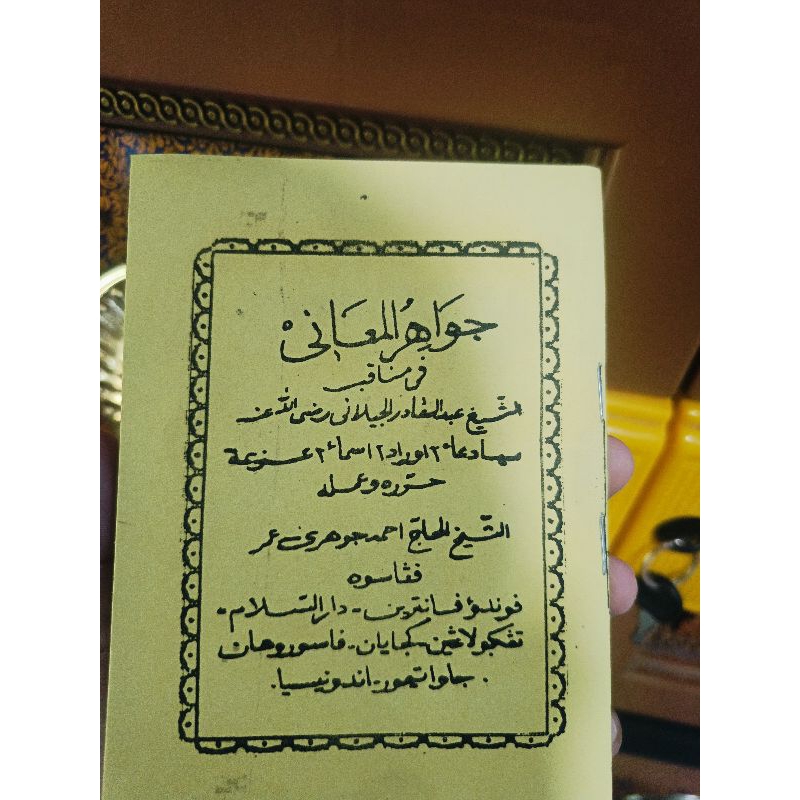 جَوَاهِرُ المَعَانِى
فى مناقب
الشّيخ عبد القادر الجيلانى رضى الله عنه
سرتا دعاء٢ اوراد٢ اسماء٢ عزيمة
حرّره وعمله
الشّيخ الحاج احمد جوهرى عمر
ڤڠاسوه
ڤوندوء ڤسانترين - دار السّلام -
تڠكولاڠين - كجايان - ڤاسوروهان
. جاوا تيمور - اندونيسيا .